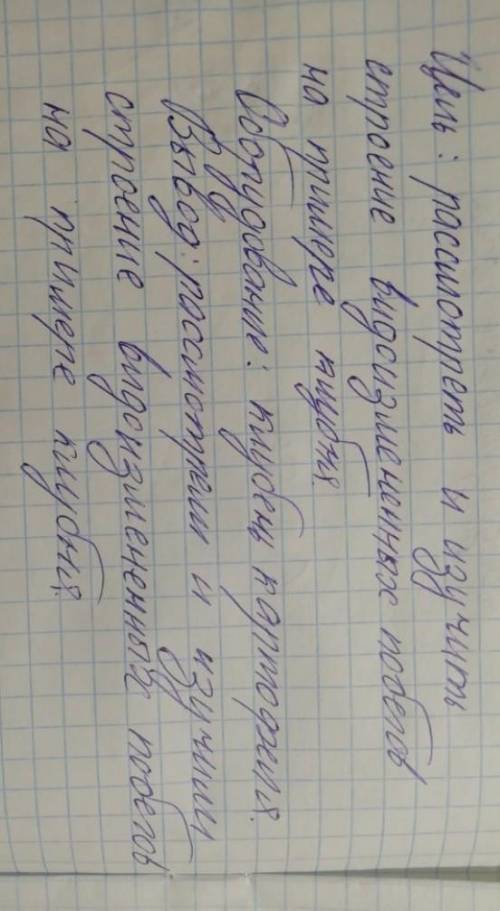 Цель: рассмотреть и изучить
строение видоизмененных побегов
на примере клубня.
Оборудование: клубень картофеля.
Вывод: рассмотрели и изучили
строение видоизмененных побегов
на примере клубня.